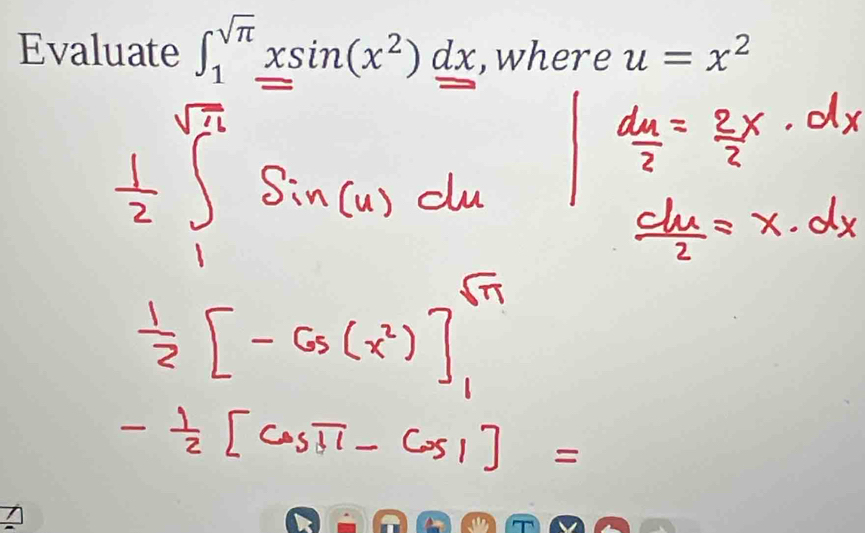 Evaluate ∫₁^√π xsin(x²) dx, where u = x²
1/2 ∫₁^√π Sin(u) du
du/2 = 2x/2 . dx
du/2 = x . dx
1/2 [- Cos(x²)]₁^√π
- 1/2 [Cosπ - Cos1] =
T